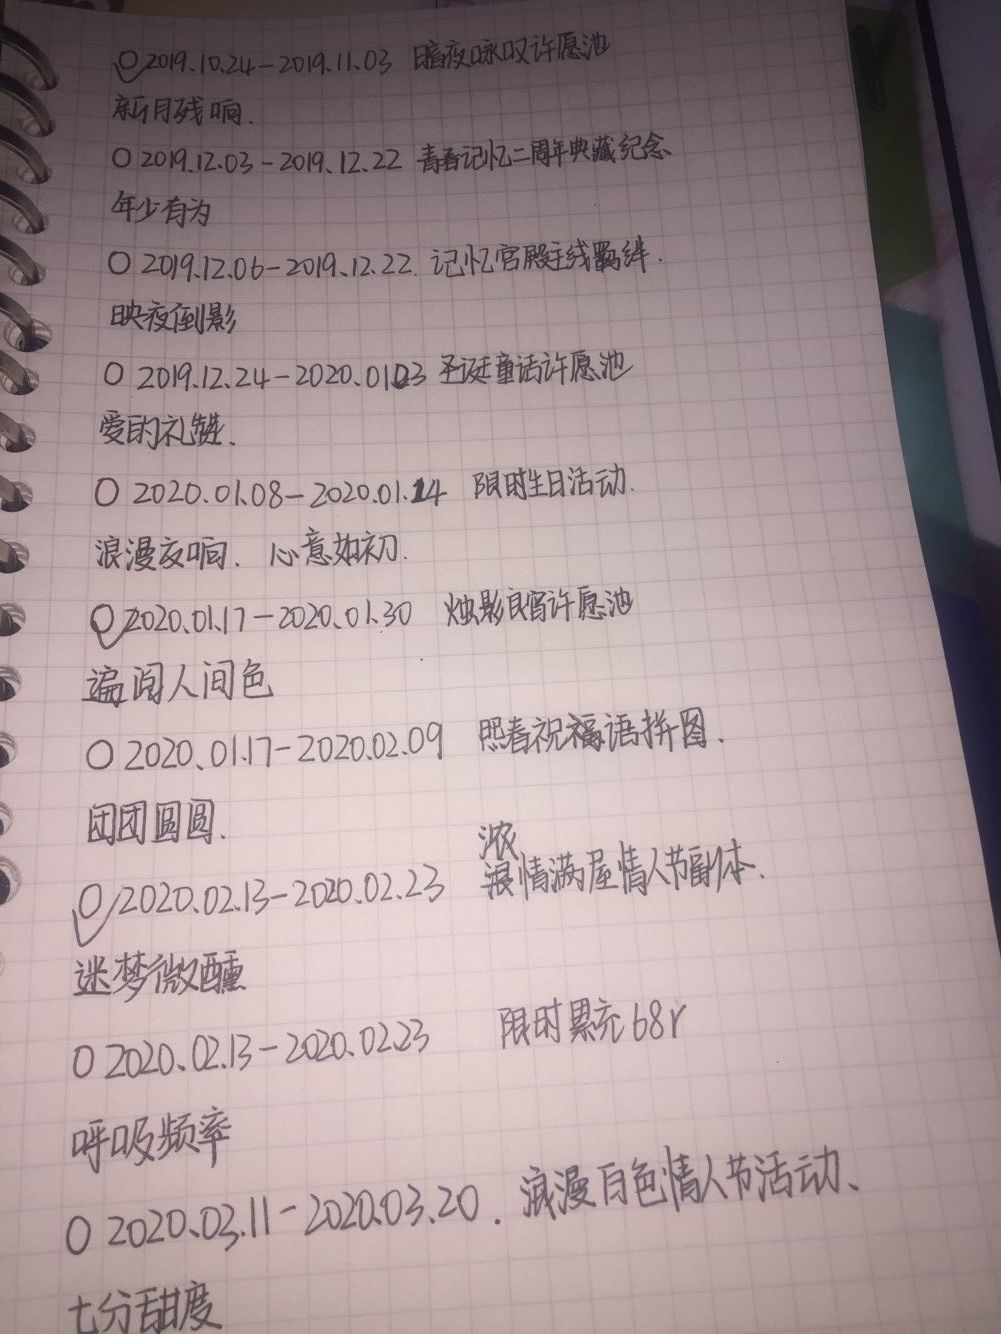 ○2019.10.24-2019.11.03 暗夜咏叹许愿池
新月残响.
○2019.12.03-2019.12.22 青春记忆二周年典藏纪念
年少有为
○2019.12.06-2019.12.22. 记忆宫殿主线羁绊.
映夜倒影
○2019.12.24-2020.01.03 圣诞童话许愿池
爱的礼赞.
○2020.01.08-2020.01.14 限时生日活动.
浪漫夜响. 心意如初.
○2020.01.17-2020.01.30 烛影良宵许愿池
遍阅人间色
○2020.01.17-2020.02.09 熙春祝福语拼图.
团团圆圆.
○2020.02.13-2020.02.23 浓情满屋情人节副本.
迷梦微醺
○2020.02.13-2020.02.23 限时累充68r
呼吸频率
○2020.03.11-2020.03.20. 浪漫白色情人节活动、
七分甜度